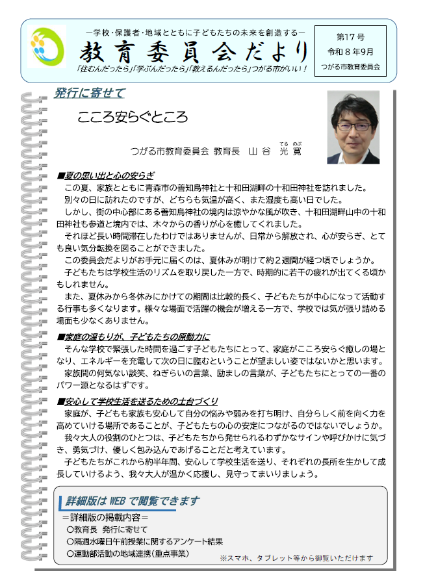 ―学校・保護者・地域とともに子どもたちの未来を創造する―
教育委員会だより
「住むんだったら」「学ぶんだったら」「教えるんだったら」つがる市がいい！
第17号
令和8年9月
つがる市教育委員会
発行に寄せて
こころ安らぐところ
つがる市教育委員会 教育長 山谷 光寛
てる のぶ
■夏の思い出と心の安らぎ
この夏、家族とともに青森市の善知鳥神社と十和田湖畔の十和田神社を訪れました。
別々の日に訪れたのですが、どちらも気温が高く、また湿度も高い日でした。
しかし、街の中心部にある善知鳥神社の境内は涼やかな風が吹き、十和田湖畔山中の十和
田神社も参道と境内では、木々からの香りが心を癒してくれました。
それほど長い時間滞在したわけではありませんが、日常から解放され、心が安らぎ、とて
も良い気分転換を図ることができました。
この委員会だよりがお手元に届くのは、夏休みが明けて約２週間が経つ頃でしょうか。
子どもたちは学校生活のリズムを取り戻した一方で、時期的に若干の疲れが出てくる頃か
もしれません。
また、夏休みから冬休みにかけての期間は比較的長く、子どもたちが中心になって活動す
る行事も多くなります。様々な場面で活躍の機会が増える一方で、学校では気が張り詰める
場面も少なくありません。
■家庭の温もりが、子どもたちの原動力に
そんな学校で緊張した時間を過ごす子どもたちにとって、家庭がこころ安らぐ癒しの場と
なり、エネルギーを充電して次の日に臨むということが望ましい姿ではないかと思います。
家族間の何気ない談笑、ねぎらいの言葉、励ましの言葉が、子どもたちにとっての一番の
パワー源となるはずです。
■安心して学校生活を送るための土台づくり
家庭が、子どもも家族も安心して自分の悩みや弱みを打ち明け、自分らしく前を向く力を
高めていける場所であることが、子どもたちの心の安定につながるのではないでしょうか。
我々大人の役割のひとつは、子どもたちから発せられるわずかなサインや呼びかけに気づ
き、勇気づけ、優しく包み込んであげることだと考えています。
子どもたちがこれから約半年間、安心して学校生活を送り、それぞれの長所を生かして成
長していけるよう、我々大人が温かく応援し、見守ってまいりましょう。
詳細版は WEB で閲覧できます
＝詳細版の掲載内容＝
○教育長 発行に寄せて
○隔週水曜日午前授業に関するアンケート結果
○運動部活動の地域連携（重点事業）
※スマホ、タブレット等から御覧いただけます